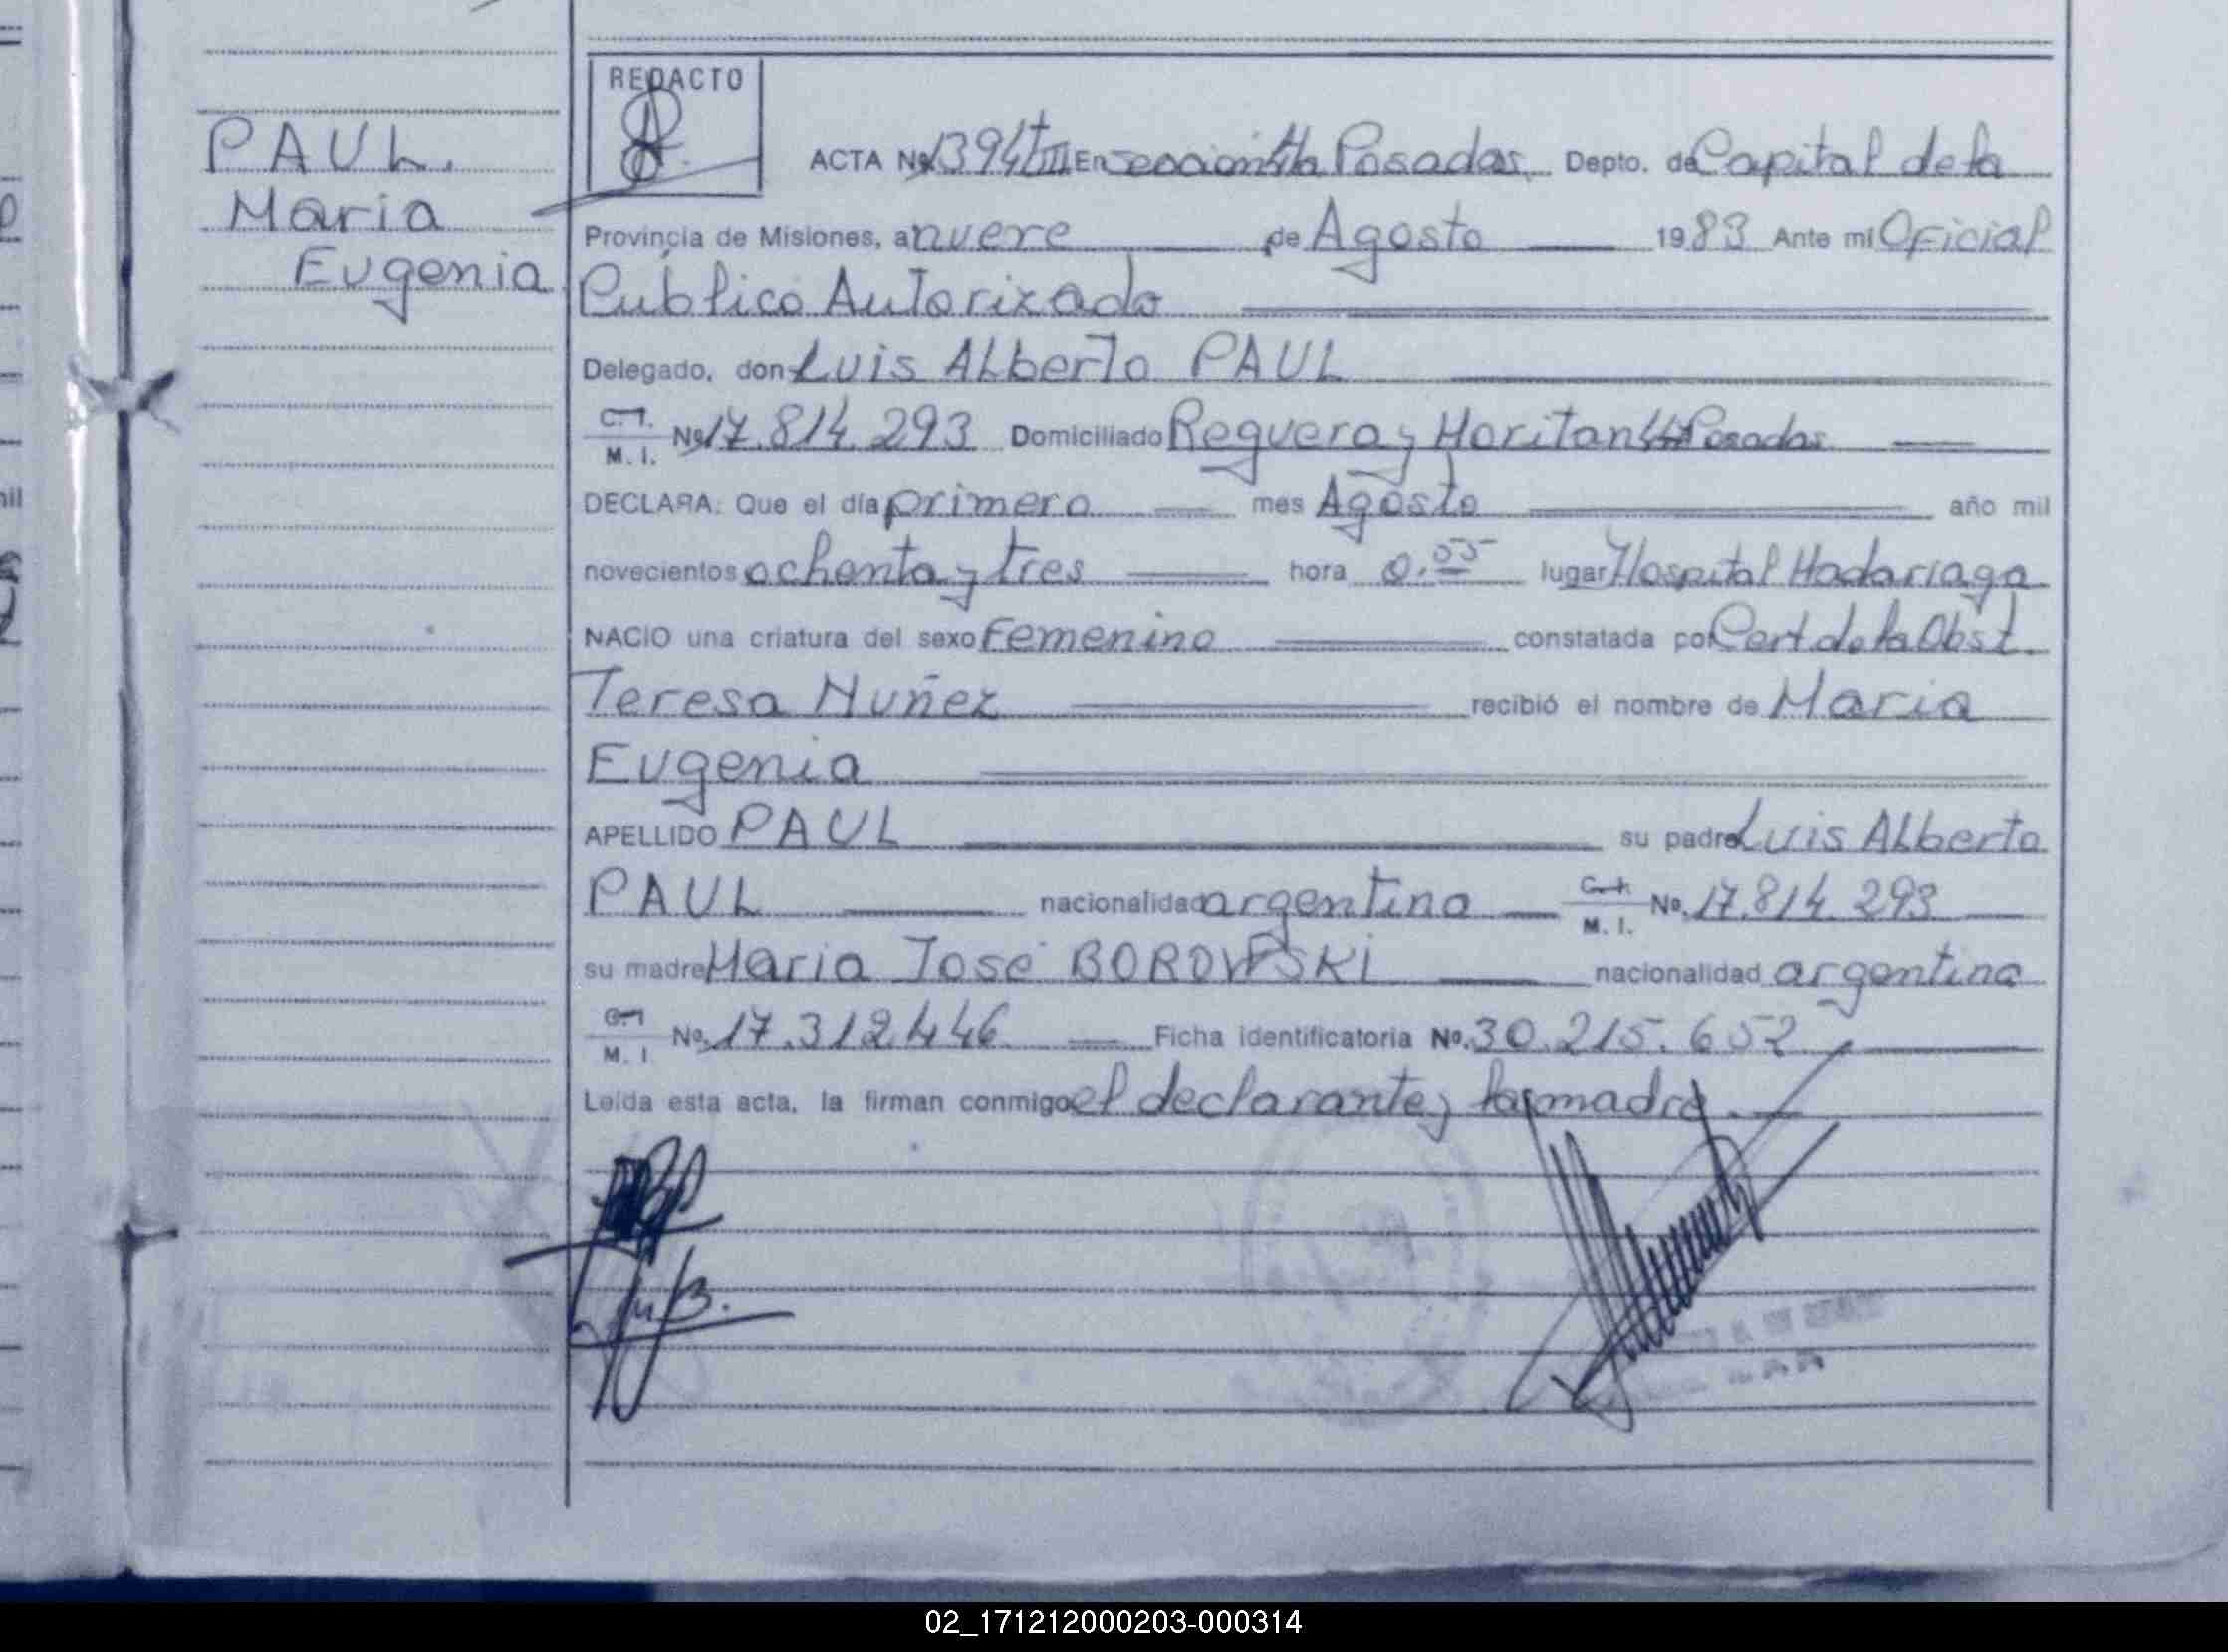 PAUL.
Maria
Eugenia
REDACTO
ACTA Nº 1394 tIII En seccion 4ta Posadas. Depto. de Capital de la
Provincia de Misiones, a nueve de Agosto 1983 Ante mi Oficial
Publico Autorizado
Delegado, don Luis Alberto PAUL
C.I.
M. I. Nº 17.814.293 Domiciliado Reguera y Moritan Posadas
DECLARA: Que el día primero mes Agosto año mil
novecientos ochenta y tres hora 0.55 lugar Hospital Madariaga
NACIO una criatura del sexo Femenino constatada por Cert de la Obst.
Teresa Nuñez recibió el nombre de Maria
Eugenia
APELLIDO PAUL su padre Luis Alberto
PAUL nacionalidad argentina C.I.
M. I. Nº. 17.814.293
su madre Maria José BOROWSKI nacionalidad argentina
C.I.
M. I. Nº. 17.312.446 Ficha identificatoria Nº. 30.215.652
Leída esta acta, la firman conmigo el declarante y la madre.
02_171212000203-000314